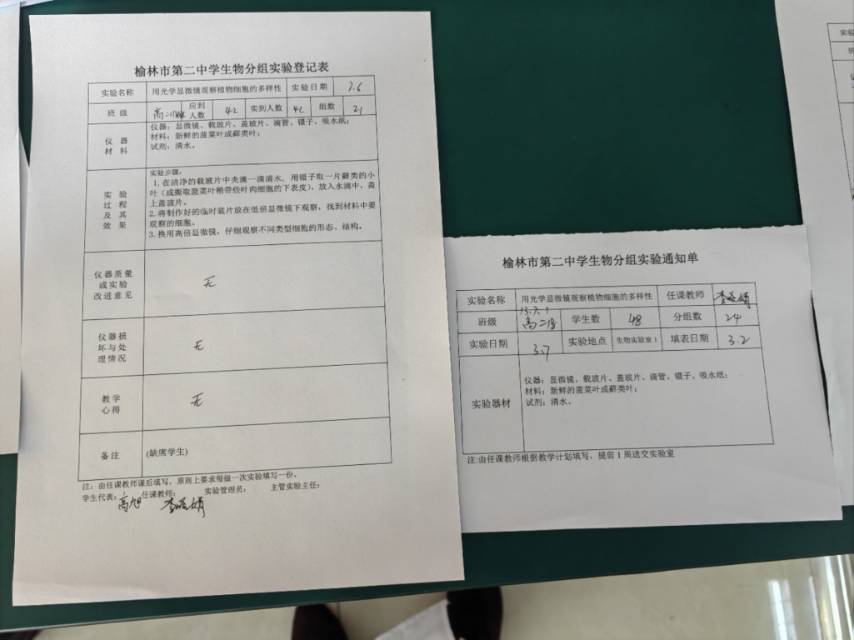 榆林市第二中学生物分组实验登记表
实验名称 用光学显微镜观察植物细胞的多样性 实验日期 3.6
班级 应到人数 42 实到人数 42 组数 21
仪器材料
仪器：显微镜、载玻片、盖玻片、滴管、镊子、吸水纸；
材料：新鲜的菠菜叶或藓类叶；
试剂：清水。
实验过程及其效果
实验步骤：
1.在洁净的载玻片中央滴一滴清水，用镊子取一片藓类的小
叶（或撕取菠菜叶稍带些叶肉细胞的下表皮），放入水滴中，盖
上盖玻片。
2.将制作好的临时装片放在低倍显微镜下观察，找到材料中要
观察的细胞。
3.换用高倍显微镜，仔细观察不同类型细胞的形态、结构。
仪器质量或实验改进意见 无
仪器损坏与处理情况 无
教学心得 无
备注 (缺席学生)
注：由任课教师课后填写，原则上要求每做一次实验填写一份。
学生代表：高旭 任课教师： 实验管理员： 主管实验主任：
榆林市第二中学生物分组实验通知单
实验名称 用光学显微镜观察植物细胞的多样性 任课教师
班级 学生数 48 分组数 24
实验日期 3.7 实验地点 生物实验室1 填表日期 3.2
实验器材
仪器：显微镜、载玻片、盖玻片、滴管、镊子、吸水纸；
材料：新鲜的菠菜叶或藓类叶；
试剂：清水。
注:由任课教师根据教学计划填写，提前1周送交实验室